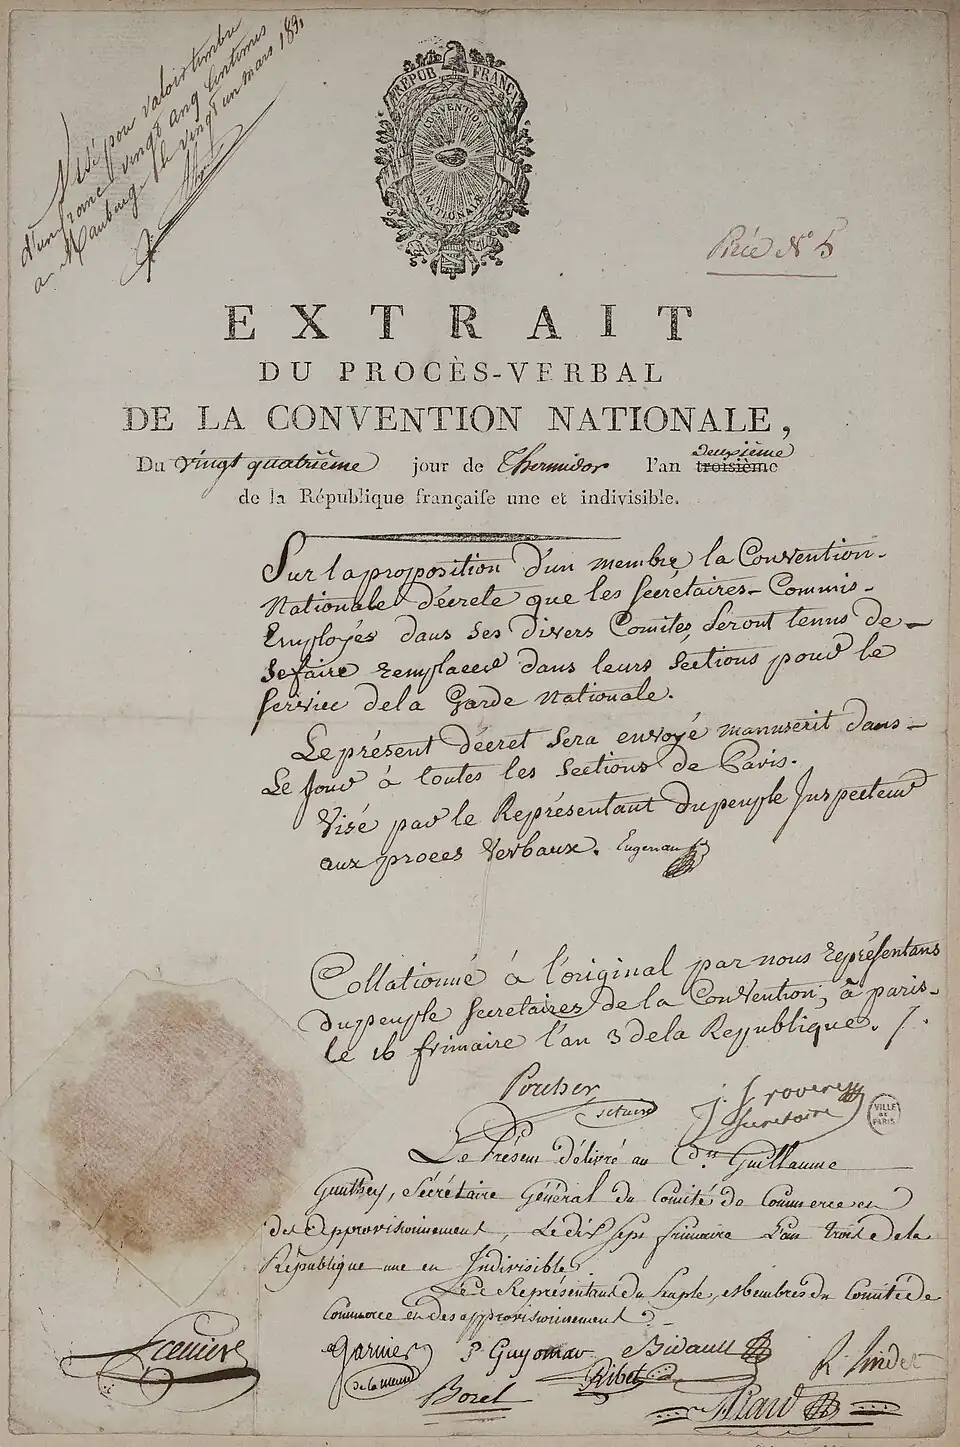 Visé pour valoir timbre
d'un franc vingt cinq Centimes
a Maubeuge le vingt un mars 1891
RÉPUB FRANÇA
CONVENTION
NATIONALE
Pièce Nº 5
EXTRAIT
DU PROCÈS-VERBAL
DE LA CONVENTION NATIONALE,
Deuxième
Du vingt quatrième jour de Thermidor l'an troisième
de la République françaiſe une et indivisible.
Sur la proposition d'un membre la Convention-
Nationale décrete que les Secrétaires-Commis-
Employés dans ses divers Comités, Seront tenus de-
se faire remplacer dans leurs Sections pour le
Service de la Garde Nationale.
Le présent décret sera envoyé manuscrit dans-
Le Jour à toutes les Sections de Paris.
Visé par le Représentant du peuple Inspecteur
aux proces verbaux.
Collationné à l'original par nous représentans
du peuple Secretaires de la Convention, à paris-
le 16 frimaire l'an 3 de la Republique.
Porcher
J. S rovere
secretaire
VILLE
DE
PARIS
Le Présent délivré au Cen Guillaume
Secrétaire Général du Comité de Commerce et
des approvisionnement, Le dix Sept frimaire L'an trois de la
République une et Indivisible.
Les Représentans du Peuple, Membres du Comité de
Commerce et des approvisionnement
garnier P Guyomar Bidault R. Lindet
Ribet
Borel